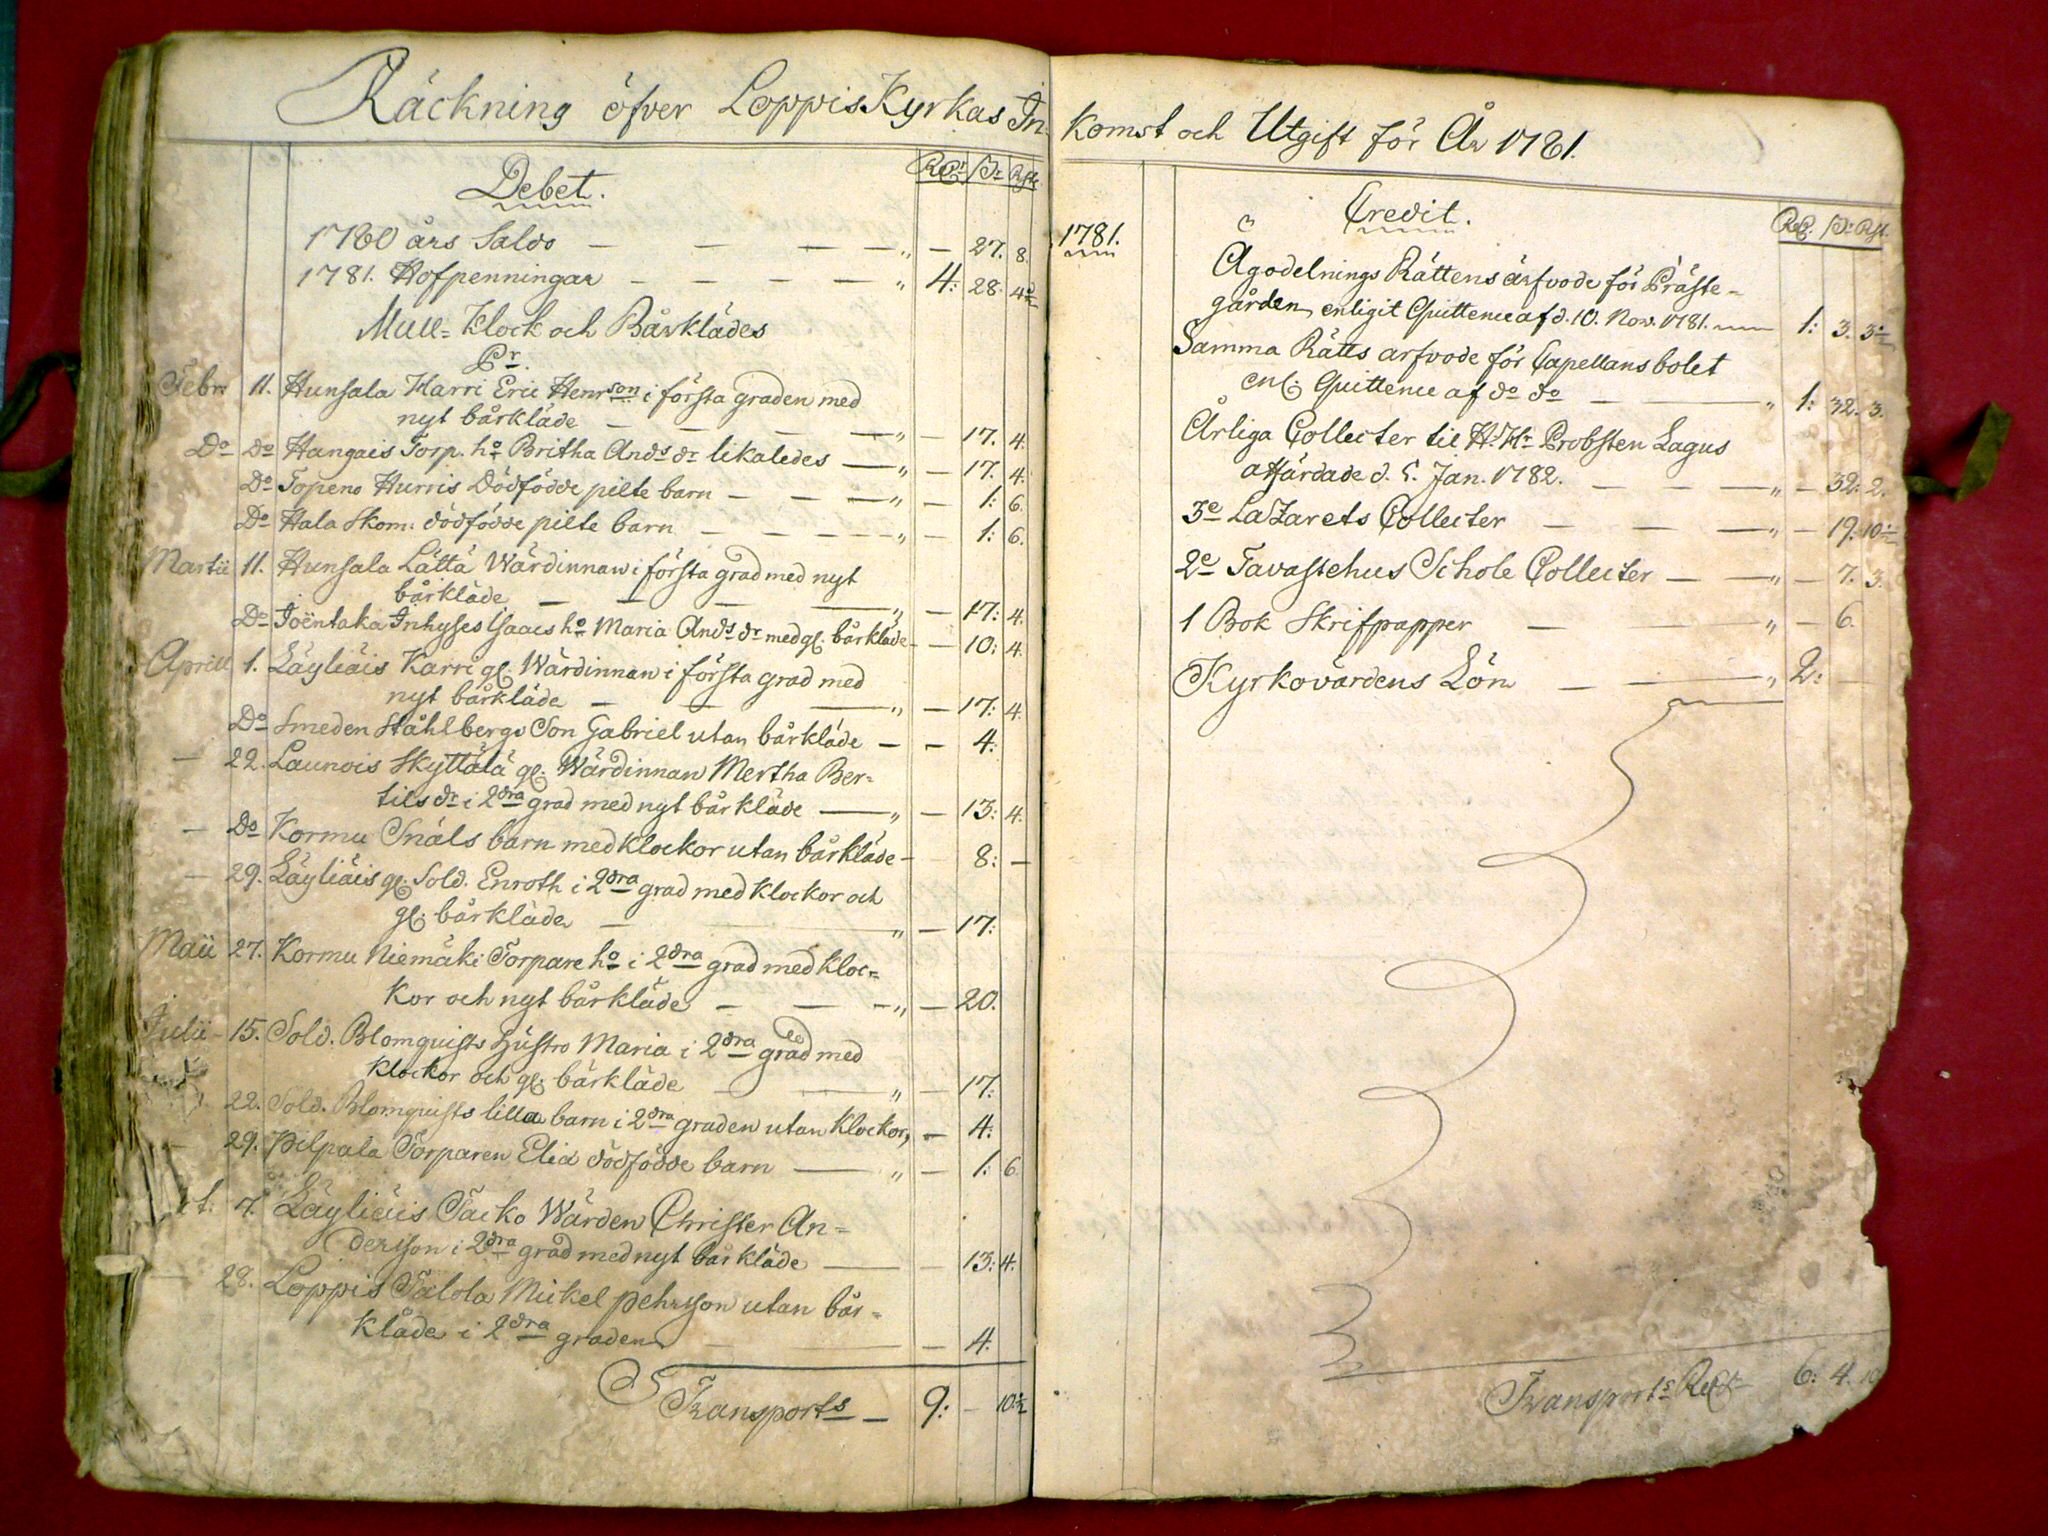 Räckning öfver Loppis Kyrkas In
Debet.
1780 års Saldo — — — — „ — 27. 8.
1781. Hofpenningar — — — — „ 4: 28. 4½
Mull- Klock och Bårklädes
Pr.
Febr 11. Hunsala Harri Eric Henrson i första graden med
nyt bårkläde — — — — „ — 17. 4.
Do do Hangais Torp. ho Britha Ands dr likaledes — „ — 17. 4.
Do Topeno Hurris Dödfödde pilte barn — — — „ — 1: 6.
Do Hala Skom: dödfödde pilte barn — — — — „ — 1: 6.
Martii 11. Hunsala Lättä Wärdinnan i första grad med nyt
bårkläde — — — — „ — 17: 4.
Do Joentaka Inhyses Isaacs ho Maria Ands dr med gl. bårkläde — — 10: 4.
Aprill 1. Läyliäis Karri gl. Wärdinnan i första grad med
nyt bårkläde — — — „ — 17: 4.
Do Smeden Ståhlbergs Son Gabriel utan bårkläde — — 4:
— 22. Launois Skyttälä gl. Wärdinnan Mertha Ber=
tils dr i 2dra grad med nyt bårkläde — „ — 13: 4.
— Do Kormu Snäls barn med klockor utan bårkläde — 8: —
— 29. Läyliäis gl. Sold. Enroth i 2dra grad med klockor och
gl. bårkläde — — „ — 17:
Maii 27. Kormu Niemäki Torpare ho i 2dra grad med kloc=
kor och nyt bårkläde — — — „ — 20.
Julii — 15. Sold. Blomquists hustro Maria i 2dra grad med
klockor och gl. bårkläde — — „ — 17:
22. Sold. Blomquists lilla barn i 2dra graden utan klockor, — 4:
— 29. Pilpala Torparen Elia dödfödde barn — „ — 1: 6
t. 7. Läyliäis Tacko Wärden Christer An=
dersson i 2dra grad med nyt bårkläde — — 13: 4.
28. Loppis Talola Mickel Pehrsson utan bår=
kläde i 2dra graden — — — 4.
Transports — 9: — 10½
komst och Utgift för År 1781.
1781.
Credit.
Ägodelnings Rättens arfvode för Präste=
gården enligit Quittence af d. 10. Nov. 1781. 1: 3. 3½
Samma Rätts arfvode för Capellans bolet
enl. Quittence af do do — — „ 1: 32. 3.
Årliga Collecter til H. Hr Probsten Lagus
affärdade d. 5. Jan. 1782. — — — „ — 32: 2.
3e Lazarets Collecter — — — „ — 19: 10½
2e Tavastehus Schole Collecter — — „ — 7. 3.
1 Bok Skrifpapper — — — „ — 6.
Kyrkovärdens Lön — — „ 2: —
Transports 6: 4. 10